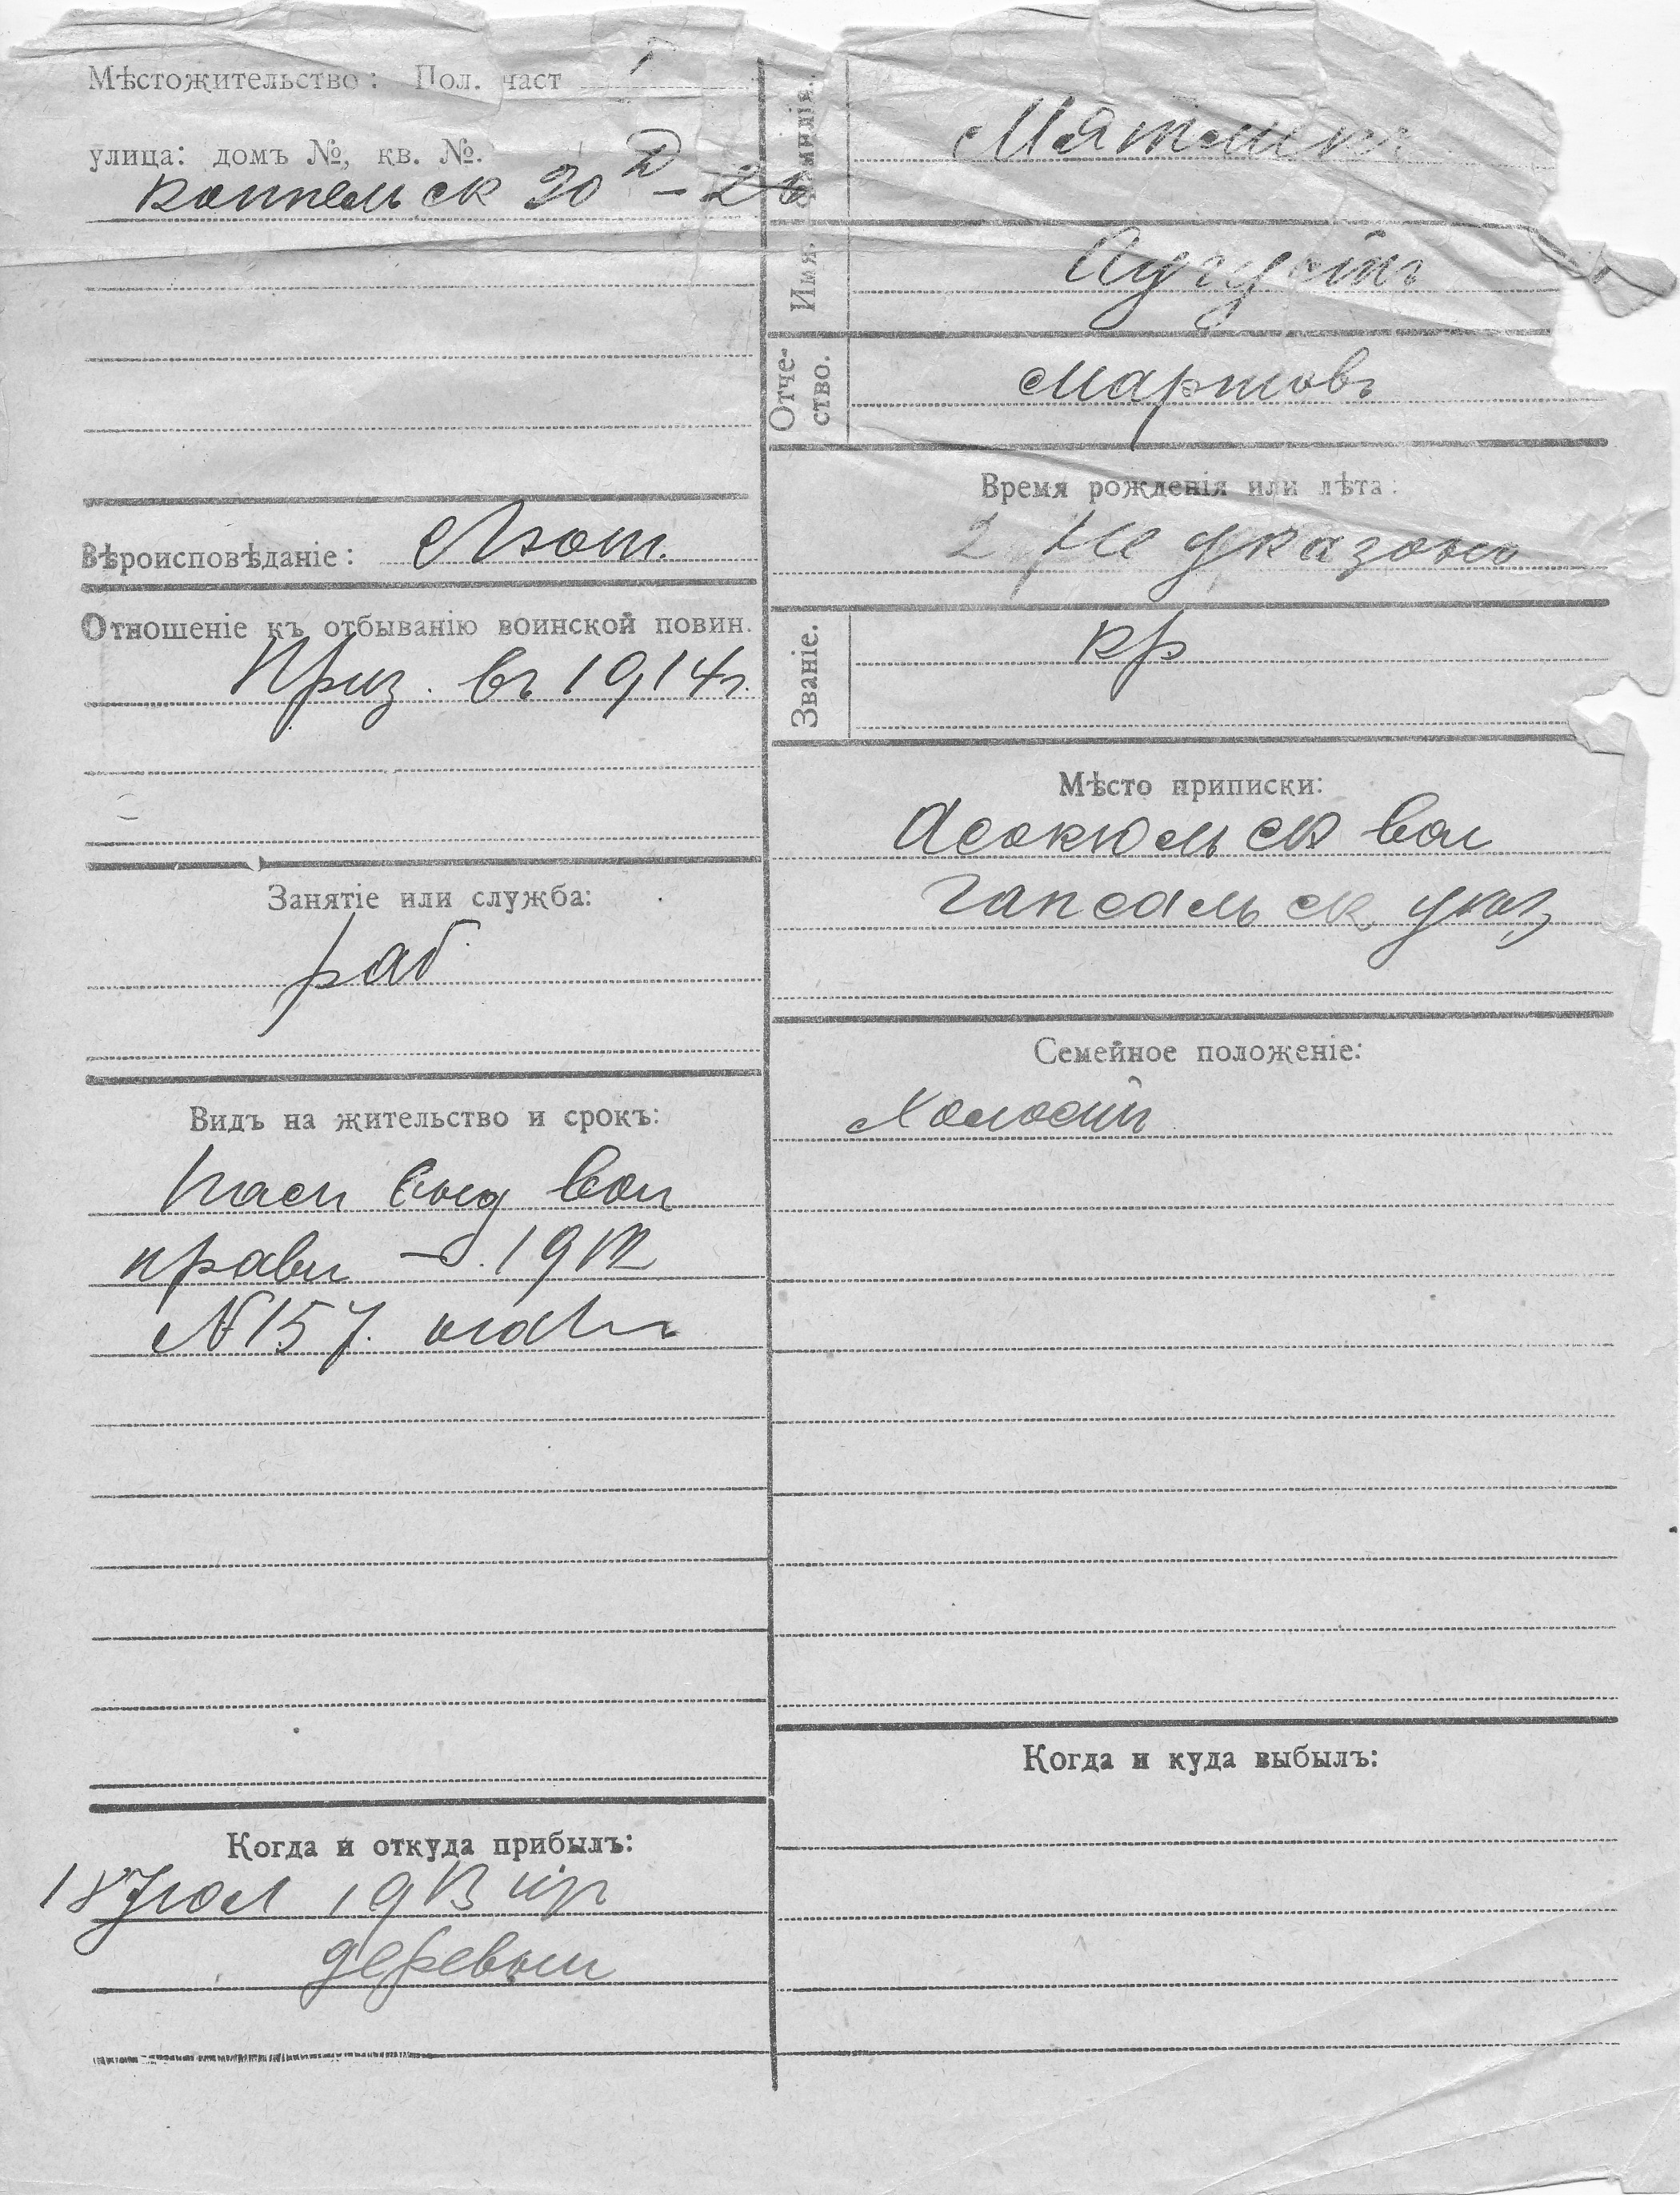 Мѣстожительство: Пол. част
улица: домъ №, кв. №.
Коппельск 20 – 26
Вѣроисповѣданіе: Лют.
Отношеніе къ отбыванію воинской повин.
Приз. въ 1914г.
Занятіе или служба:
раб
Видъ на жительство и срокъ:
пасп выд вол
правл 1912
№ 157.
Когда и откуда прибылъ:
18 Июл 1913 изъ
деревни
Фамилія.
Имя.
Августъ
Отче-
ство.
Мартовъ
Время рожденія или лѣта:
Не указано
Званіе.
кр
Мѣсто приписки:
Асокюльск вол
Гапсальск уѣз
Семейное положеніе:
Холостъ
Когда и куда выбылъ: